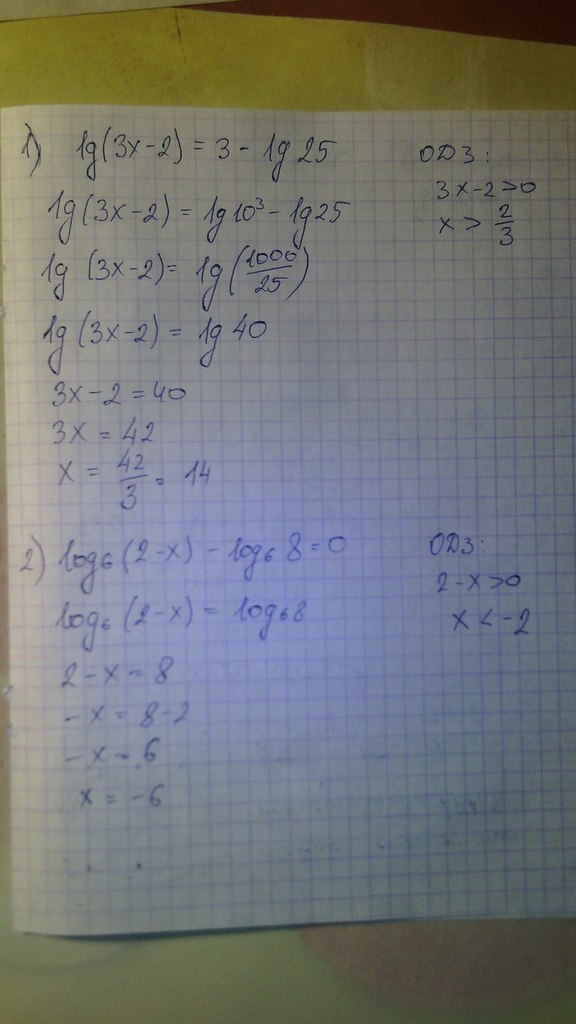 1) lg(3x-2) = 3 - lg 25
ОДЗ:
3x-2>0
x > 2/3
lg(3x-2) = lg10³ - lg25
lg (3x-2) = lg(1000/25)
lg(3x-2) = lg 40
3x-2 = 40
3x = 42
x = 42/3 = 14
2) log₆(2-x) - log₆ 8 = 0
ОДЗ:
2-x>0
x < -2
log₆(2-x) = log₆8
2-x = 8
-x = 8-2
-x = 6
x = -6